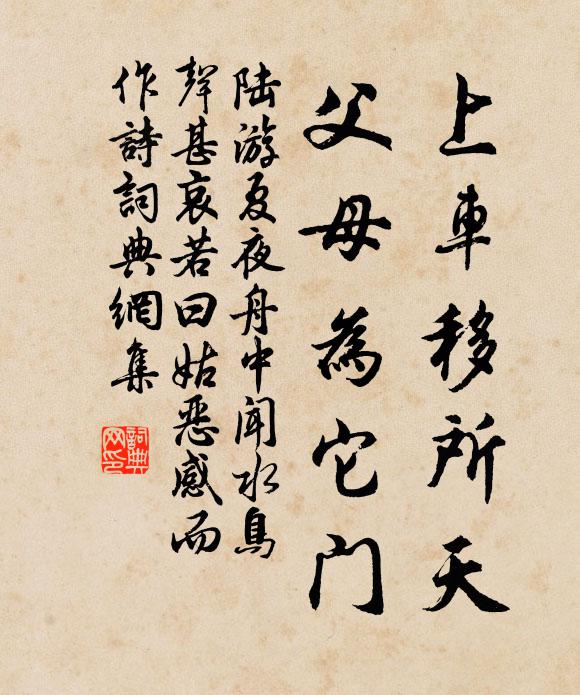 上車移所天
父母為它門
陆游夏夜舟中闻水鳥
聲甚哀若曰姑恶感而
作詩詞典網集
詞典
网印